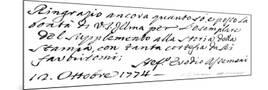 Ringrazio ancora quanto so, e posso la
bontà di V.S. Illma per l'esemplare
del Supplemento alla Storia della
Stampa, con tanta cortesia da lei
favoritomi;
Stefo Evodio Assemani
12. Ottobre 1774